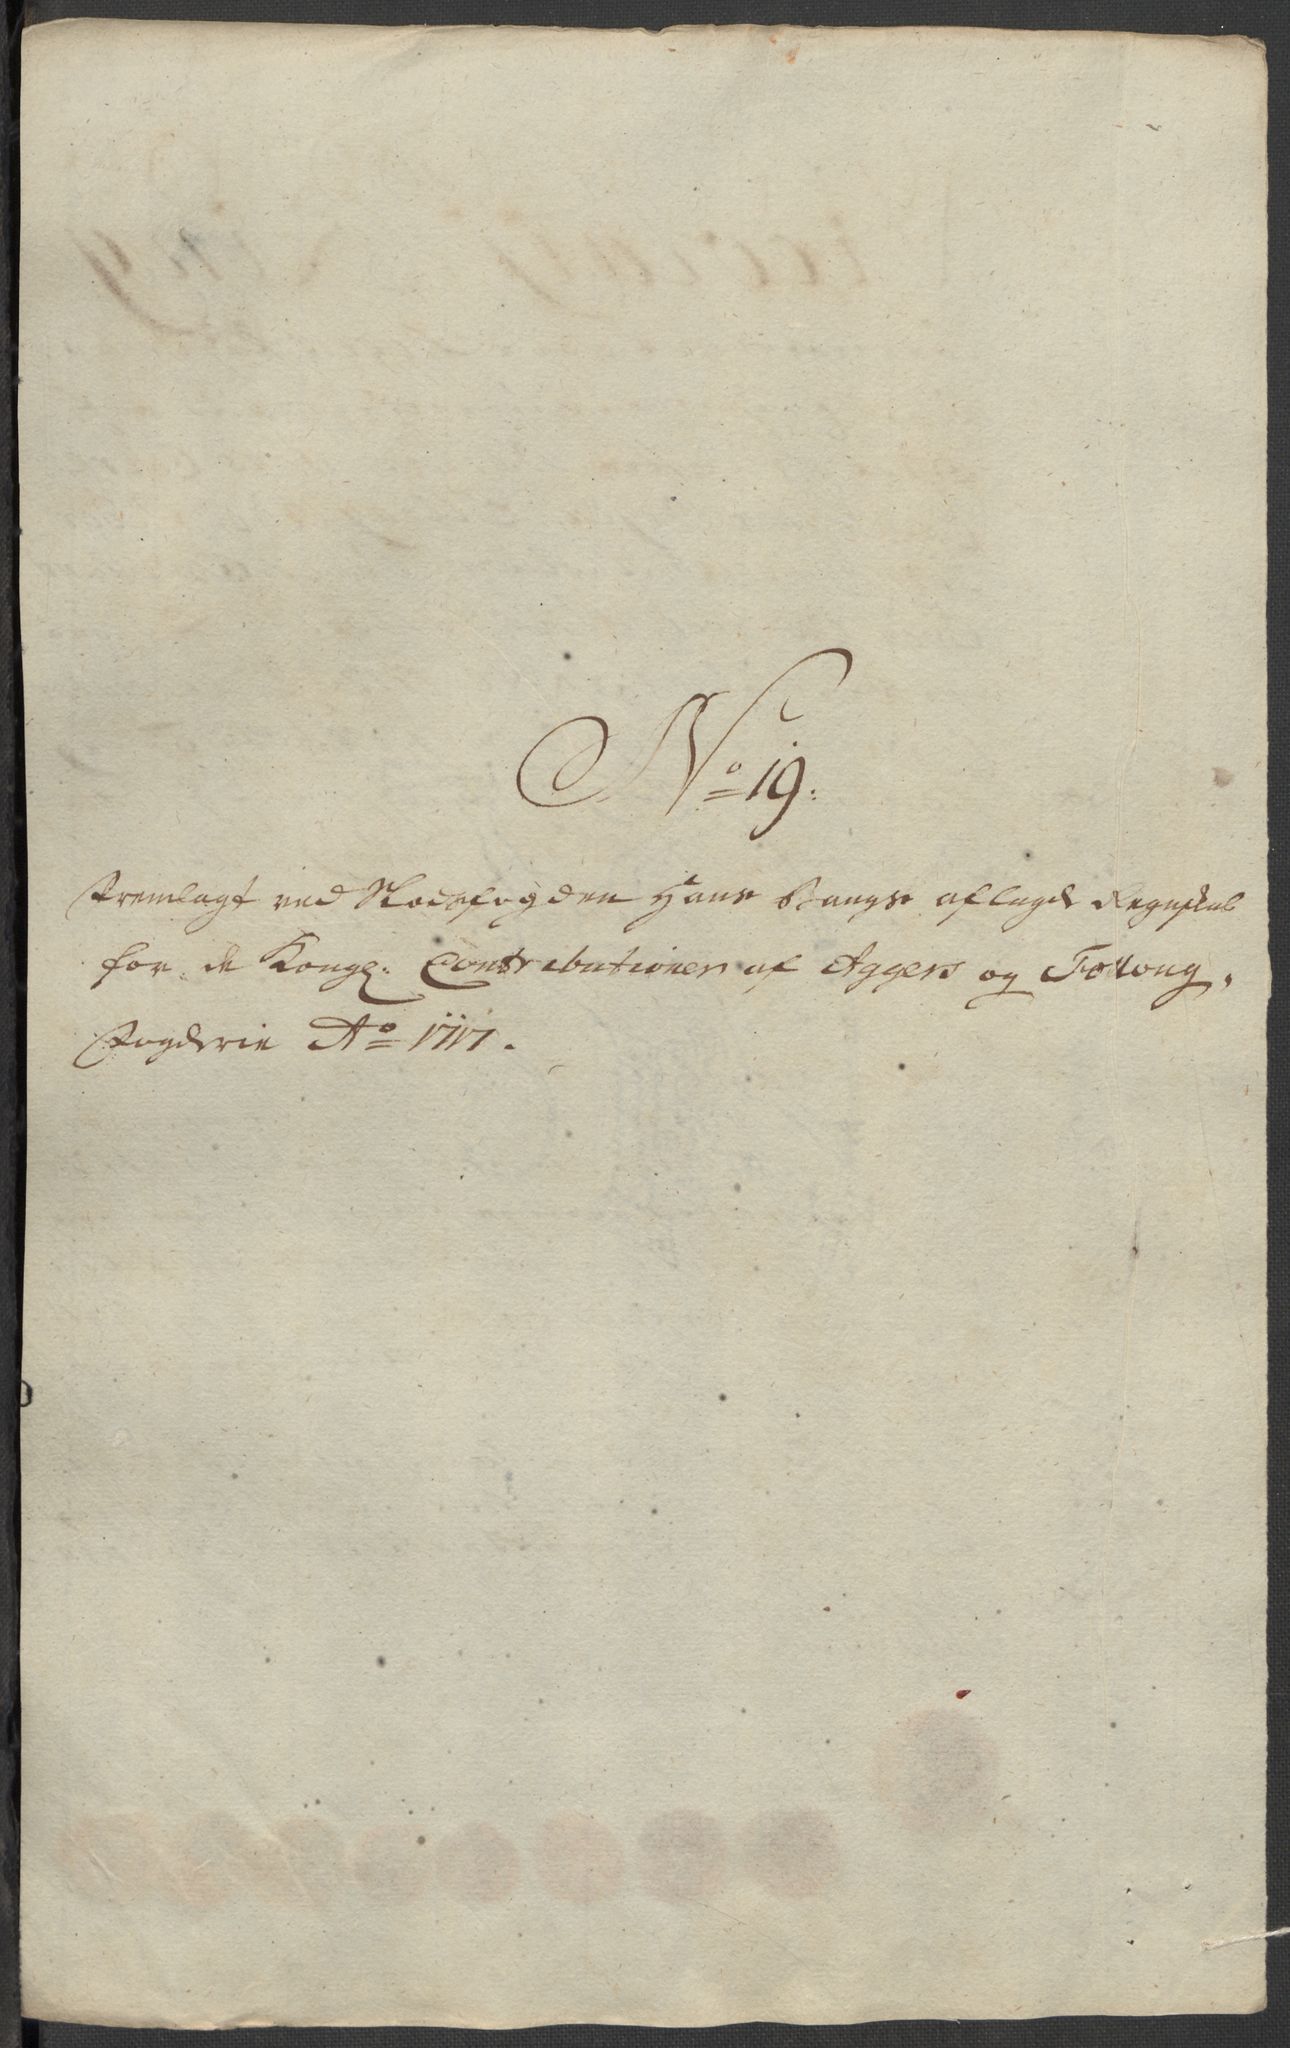 No 19:
Fremlagt ved Stodsfogden Hans Bangs aflagde Regnskab
for de Kongl: Contributioner af Aggers og Folloug,
Fogderie Ao 1717.